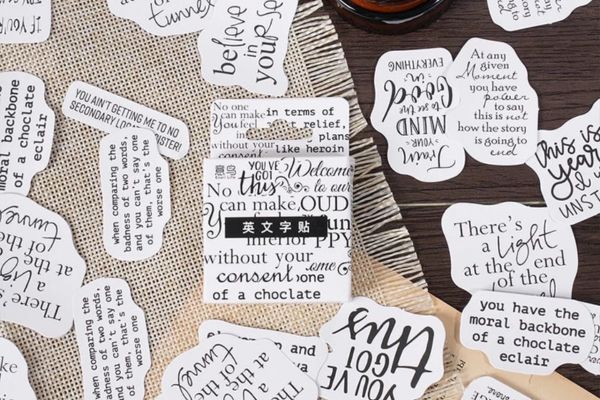 tunnel
believe
in
yourself
If you
moral backbone
of a choclate
eclair
YOU AIN'T GETTING ME TO NO
when comparing the
badness of two words,
and you can't say one
of them, that's the
worse one
There's
a Light
at the
end of the
tunnel
when comparing the
badness of two words,
and you can't say one
of them, that's the
worse one
There's
No one
can make
You
without your
in terms of
relief,
plans
like heroin
YOU'VE
GOT
this
Welcome
to our
No
can make
OUD
英文字贴
inferior
PPY
without your
consent
ome
one
of a choclate
Train
your
MIND
to see the
Good
in
EVERYTHING
At any
given
Moment
you have
power
to say
this is not
how the story
is going to
end
this is
year
UNST
There's
a Light
at the
end of the
you have the
moral backbone
of a choclate
eclair
YOU'VE
GOT
this
There's
a Light
at the